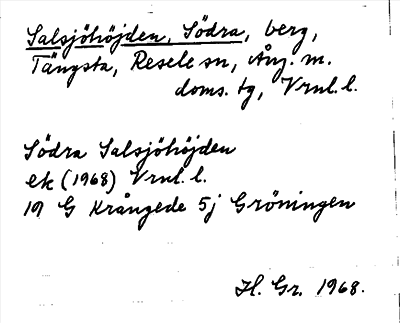 Salsjöhöjden, Södra, berg,
Tängsta, Resele sn, Ång. m.
doms. tg, Vrnl. l.
Södra Salsjöhöjden
ek (1968) Vrnl. l.
19 G Krångede 5j Gröningen
H. Gr. 1968.